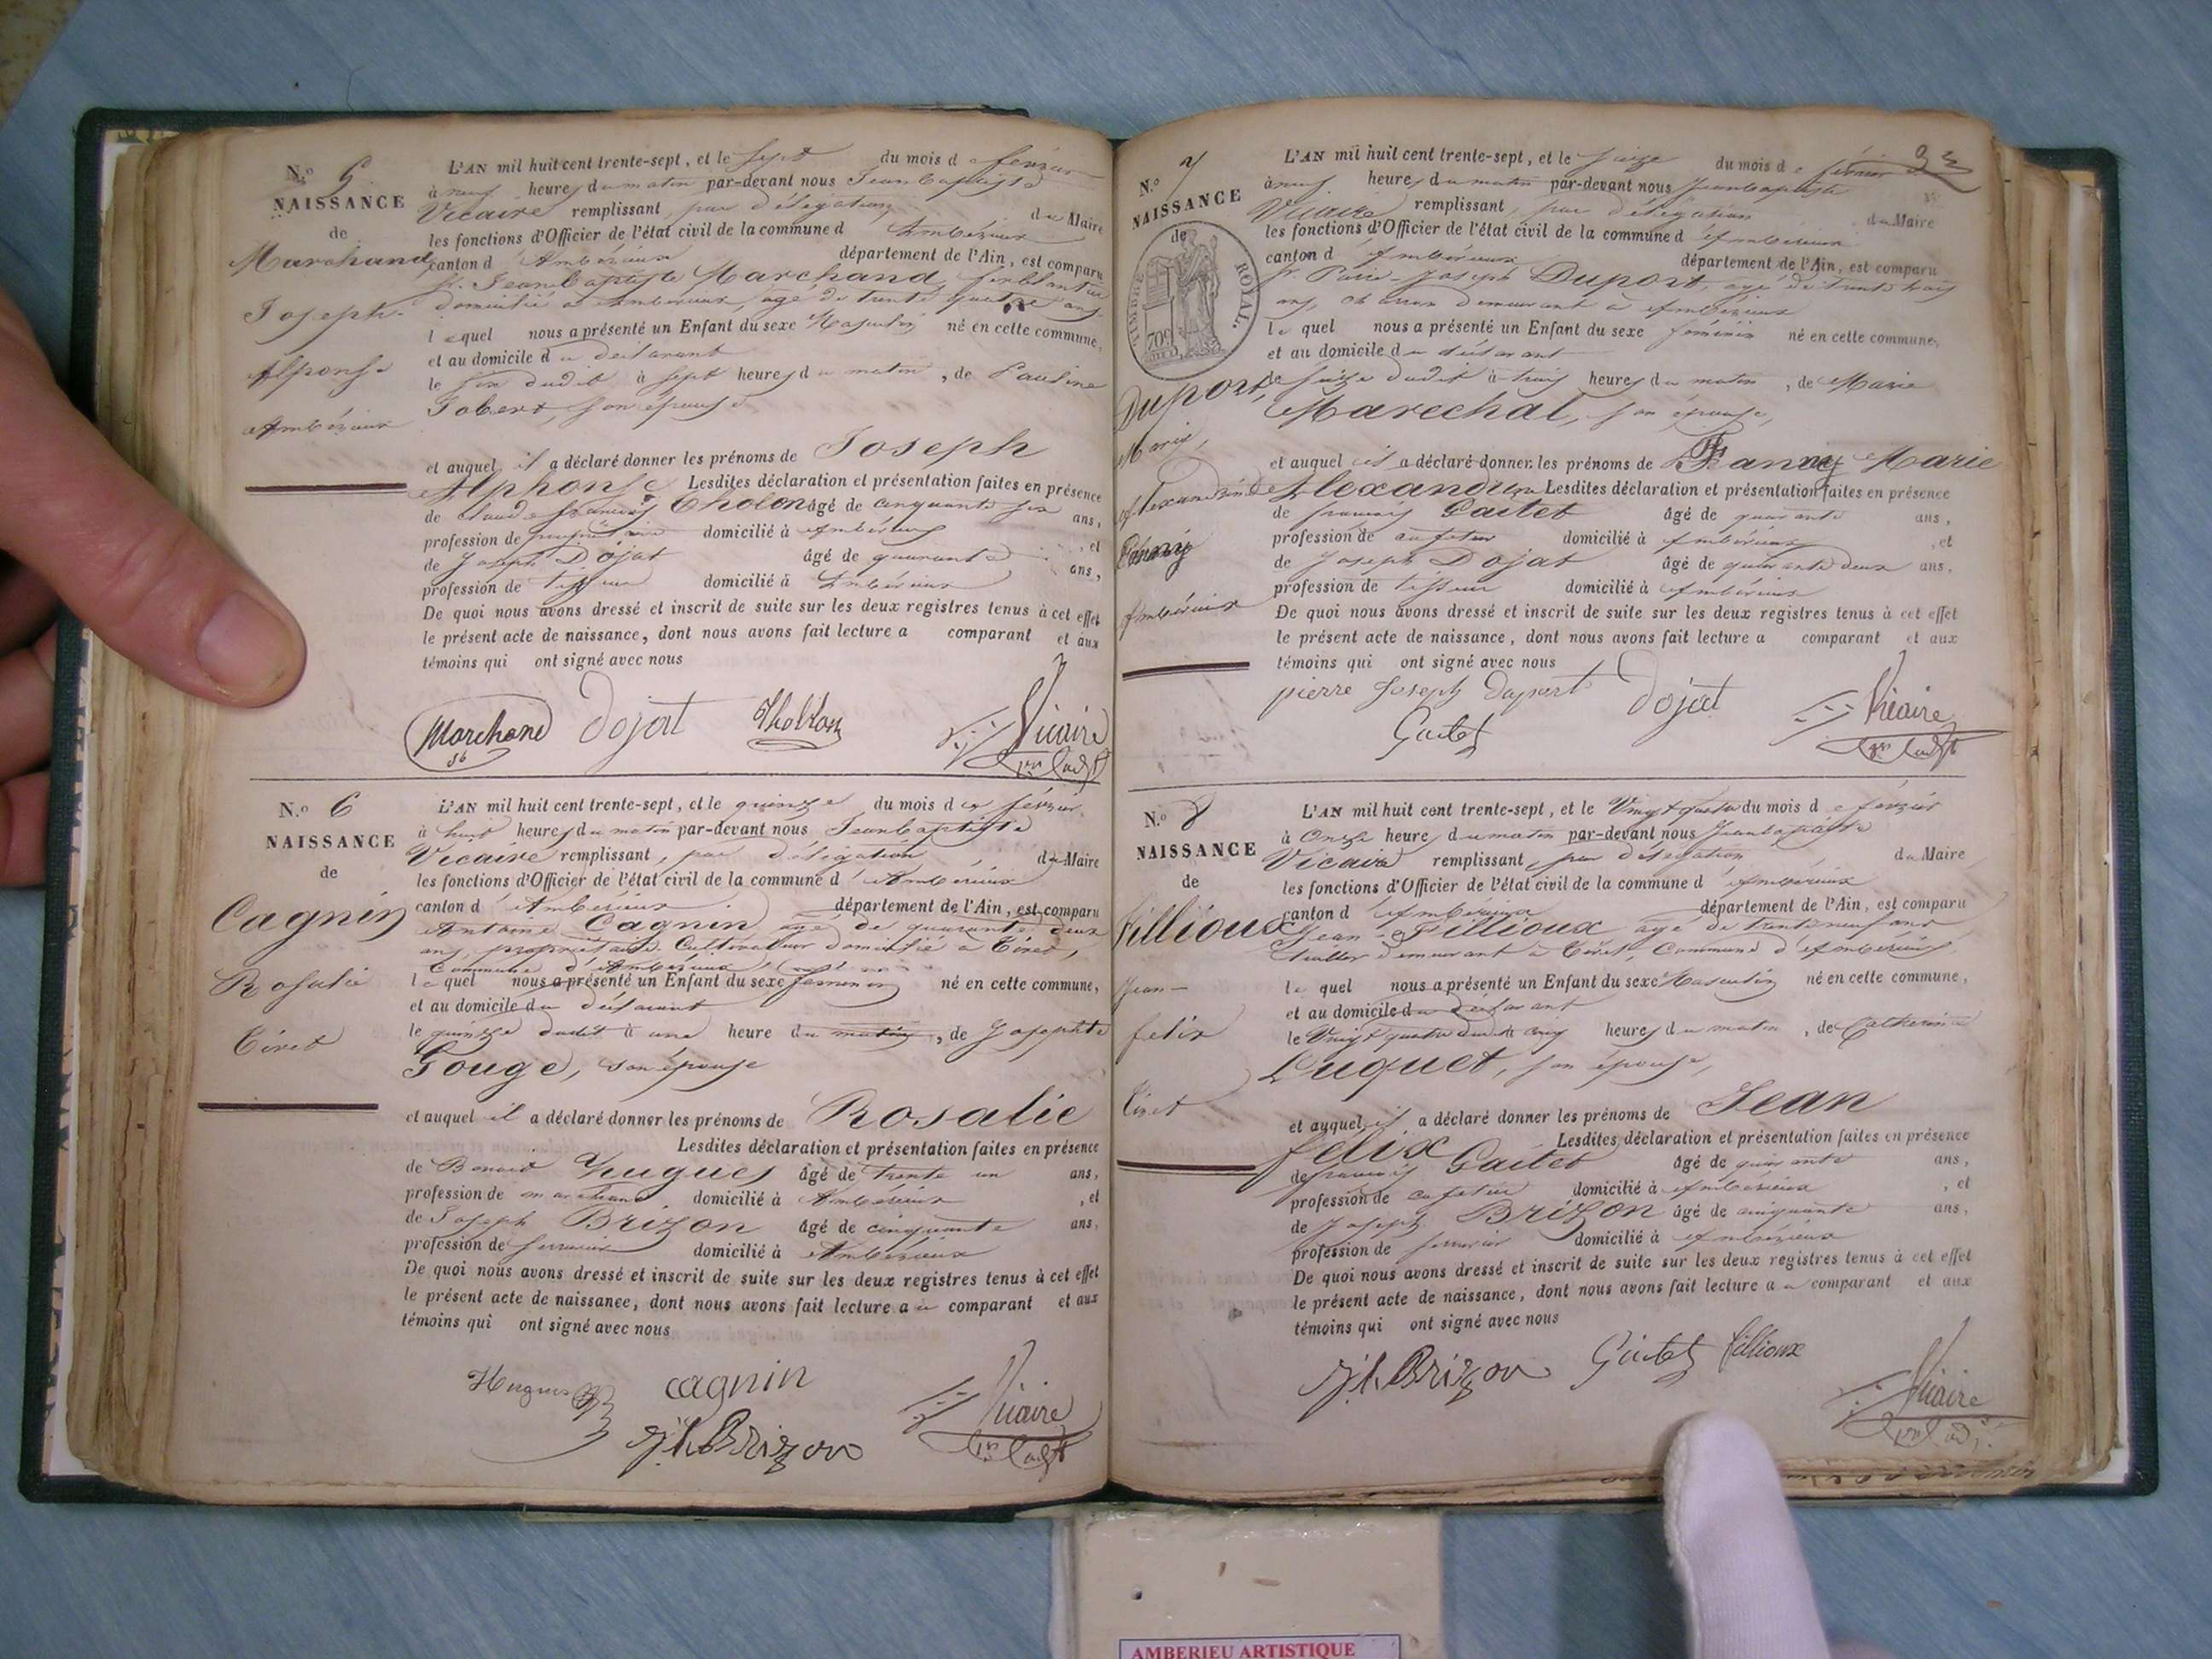 N.o 5
NAISSANCE
de
Marchand
Joseph
Alponse
Ambérieux
L'AN mil huit cent trente-sept, et le sept du mois d e février
à neuf heures du matin par-devant nous Jean Baptiste
Vicaire remplissant, par délégation du Maire
les fonctions d'Officier de l'état civil de la commune d' Ambérieux
canton d' Ambérieux département de l'Ain, est comparu
sr. Jean Baptiste Marchand, ferblantier
domicilié à Ambérieux, agé de trente quatre ans
lequel nous a présenté un Enfant du sexe Masculin né en cette commune,
et au domicile du déclarant
le six dudit à sept heures du matin, de Pauline
Jobert, son épouse
et auquel il a déclaré donner les prénoms de Joseph
Alphonse Lesdites déclaration et présentation faites en présence
de Claude françois Tholon âgé de cinquante six ans,
profession de propriétaire domicilié à Ambérieux, et
de Joseph Dojat âgé de quarante ans,
profession de tisseur domicilié à Ambérieux
De quoi nous avons dressé et inscrit de suite sur les deux registres tenus à cet effet
le présent acte de naissance, dont nous avons fait lecture a comparant et aux
témoins qui ont signé avec nous
Marchand Dojat Tholon Vicaire
N.o 6
NAISSANCE
de
Cagnin
Rosalie
Tiret
L'AN mil huit cent trente-sept, et le quinze du mois de février
à huit heures du matin par-devant nous Jean Baptiste
Vicaire remplissant, par délégation du Maire
les fonctions d'Officier de l'état civil de la commune d' Ambérieux
canton d' Ambérieux département de l'Ain, est comparu
Antoine Cagnin agé de quarante deux
ans, propriétaire Cultivateur domicilié à Tiret,
Commune d'Ambérieux
lequel nous a présenté un Enfant du sexe féminin né en cette commune,
et au domicile du déclarant
le quinze dudit à une heure du matin, de Josephte
Gouge, son épouse
et auquel il a déclaré donner les prénoms de Rosalie
Lesdites déclaration et présentation faites en présence
de Benoit Hugues âgé de trente un ans,
profession de marchand domicilié à Ambérieux, et
de Joseph Brizon âgé de cinquante ans,
profession de serrurier domicilié à Ambérieux
De quoi nous avons dressé et inscrit de suite sur les deux registres tenus à cet effet
le présent acte de naissance, dont nous avons fait lecture a u comparant et aux
témoins qui ont signé avec nous
Hugues cagnin Vicaire
Brizon
93
N.o 7
NAISSANCE
de
TIMBRE ROYAL.
70c
Duport,
Marie,
Alexandrine
Fanny
Ambérieux
L'AN mil huit cent trente-sept, et le seize du mois de février
à neuf heures du matin par-devant nous Jean baptiste
Vicaire remplissant, par délégation du Maire
les fonctions d'Officier de l'état civil de la commune d' Ambérieux
canton d' Ambérieux département de l'Ain, est comparu
sr. Pierre-Joseph Duport, agé de trente trois
ans, charron demeurant à Ambérieux
lequel nous a présenté un Enfant du sexe féminin né en cette commune,
et au domicile du déclarant
le seize dudit à trois heures du matin, de Marie
Marechal, son épouse,
et auquel il a déclaré donner les prénoms de Fanny Marie
Alexandrine Lesdites déclaration et présentation faites en présence
de françois Gaitet âgé de quarante ans,
profession de cafetier domicilié à Ambérieux, et
de Joseph Dojat âgé de quarante deux ans,
profession de tisseur domicilié à Ambérieux
De quoi nous avons dressé et inscrit de suite sur les deux registres tenus à cet effet
le présent acte de naissance, dont nous avons fait lecture a comparant et aux
témoins qui ont signé avec nous
pierre Joseph Duport Dojat Vicaire
Gaitet
N.o 8
NAISSANCE
de
Fillioux
Jean-
felix
Tiret
L'AN mil huit cent trente-sept, et le Vingt quatre du mois de février
à Onze heures du matin par-devant nous Jean baptiste
Vicaire remplissant, par délégation du Maire
les fonctions d'Officier de l'état civil de la commune d' Ambérieux
canton d' Ambérieux département de l'Ain, est comparu
Jean Fillioux agé de trente neuf ans
demeurant à Tiret, Commune d'Ambérieux,
lequel nous a présenté un Enfant du sexe Masculin né en cette commune,
et au domicile du déclarant
le Vingt quatre dudit à cinq heures du matin, de Catherine
Luquet, son épouse,
et auquel il a déclaré donner les prénoms de Jean
félix Lesdites déclaration et présentation faites en présence
de françois Gaitet âgé de quarante ans,
profession de cafetier domicilié à Ambérieux, et
de Joseph Brizon âgé de cinquante ans,
profession de serrurier domicilié à Ambérieux
De quoi nous avons dressé et inscrit de suite sur les deux registres tenus à cet effet
le présent acte de naissance, dont nous avons fait lecture a u comparant et aux
témoins qui ont signé avec nous
Brizon Gaitet fillioux Vicaire
AMBERIEU ARTISTIQUE